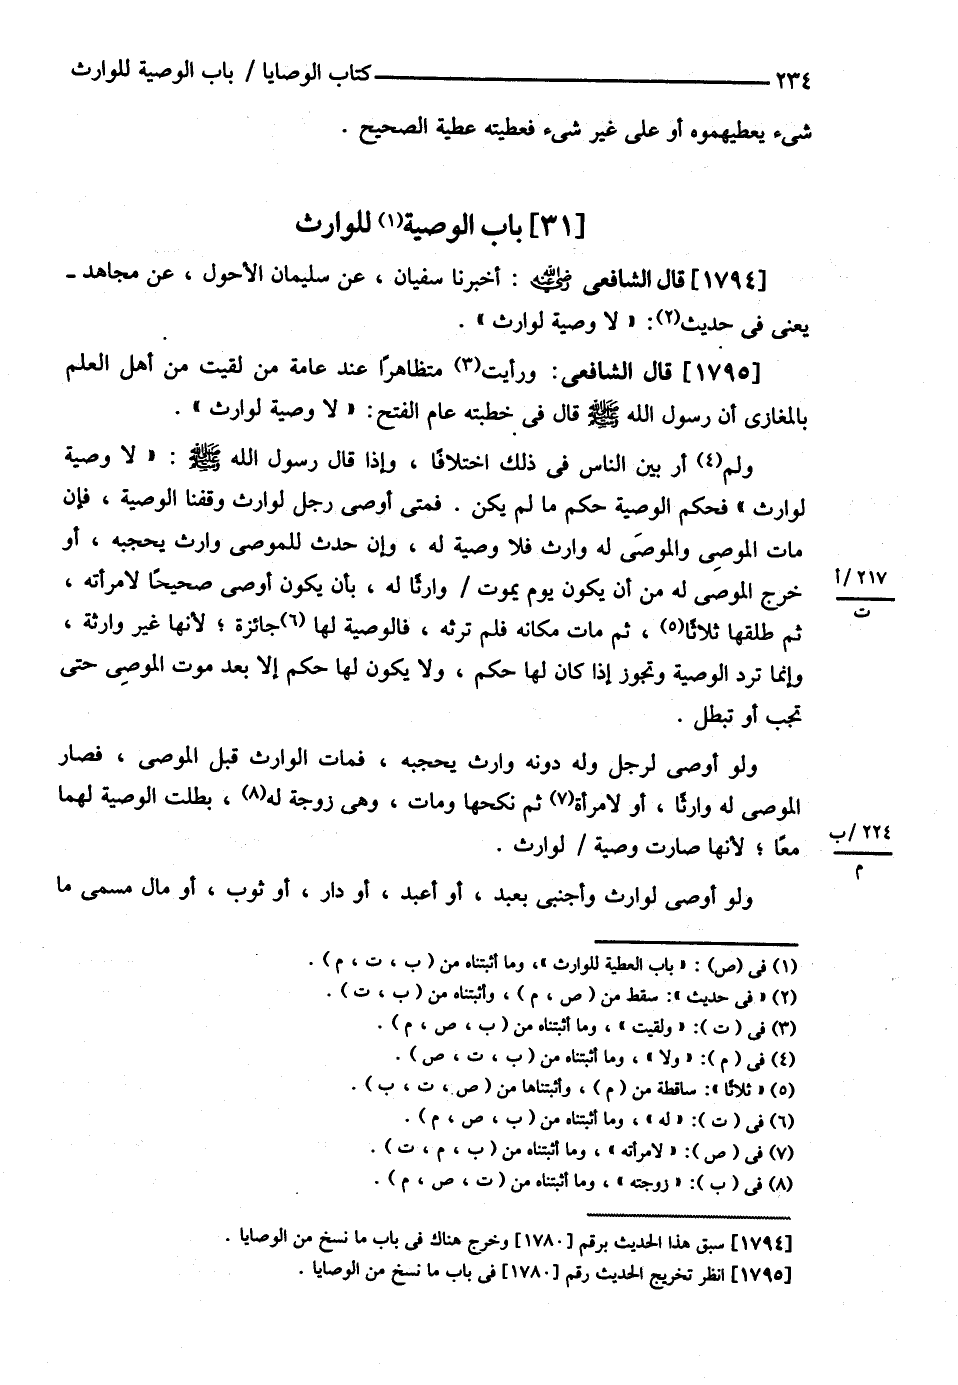 ٢٣٤ ـــــــــــــــــــــــــــــــــــــــــــ كتاب الوصايا / باب الوصية للوارث
شىء يعطيهموه أو على غير شىء فعطيته عطية الصحيح .
[٣١] باب الوصية(١) للوارث
[١٧٩٤] قال الشافعى رضي الله عنه : أخبرنا سفيان ، عن سليمان الأحول ، عن مجاهد ـ
يعنى فى حديث(٢): « لا وصية لوارث » .
[١٧٩٥] قال الشافعى: ورأيت(٣) متظاهرًا عند عامة من لقيت من أهل العلم
بالمغازى أن رسول الله ﷺ قال فى خطبته عام الفتح: « لا وصية لوارث » .
ولم(٤) أر بين الناس فى ذلك اختلافًا ، وإذا قال رسول الله ﷺ : « لا وصية
لوارث » فحكم الوصية حكم ما لم يكن . فمتى أوصى رجل لوارث وقفنا الوصية ، فإن
مات الموصِى والموصَى له وارث فلا وصية له ، وإن حدث للموصى وارث يحجبه ، أو
خرج الموصى له من أن يكون يوم يموت / وارثًا له ، بأن يكون أوصى صحيحًا لامرأته ،
٢١٧/أ
ت
ثم طلقها ثلاثًا(٥) ، ثم مات مكانه فلم ترثه ، فالوصية لها (٦)جائزة ؛ لأنها غير وارثة ،
وإنما ترد الوصية وتجوز إذا كان لها حكم ، ولا يكون لها حكم إلا بعد موت الموصِى حتى
تجب أو تبطل .
ولو أوصى لرجل وله دونه وارث يحجبه ، فمات الوارث قبل الموصى ، فصار
الموصى له وارثًا ، أو لامرأة(٧) ثم نكحها ومات ، وهى زوجة له(٨) ، بطلت الوصية لهما
معًا ؛ لأنها صارت وصية / لوارث .
٢٢٤/ب
م
ولو أوصى لوارث وأجنبى بعبد ، أو أعبد ، أو دار ، أو ثوب ، أو مال مسمى ما
(١) فى (ص) : « باب العطية للوارث »، وما أثبتناه من ( ب ، ت ، م ) .
(٢) « فى حديث »: سقط من ( ص ، م ) ، وأثبتناه من ( ب ، ت ) .
(٣) فى ( ت ): « ولقيت » ، وما أثبتناه من ( ب ، ص ، م ) .
(٤) فى ( م ): « ولا » ، وما أثبتناه من ( ب ، ت ، ص ) .
(٥) « ثلاثًا »: ساقطة من ( م ) ، وأثبتناها من ( ص ، ت ، ب ) .
(٦) فى ( ت ): « له » ، وما أثبتناه من ( ب ، ص ، م ) .
(٧) فى ( ص ): « لامرأته » ، وما أثبتناه من ( ب ، م ، ت ) .
(٨) فى ( ب ): « زوجته » ، وما أثبتناه من ( ت ، ص ، م ) .
[١٧٩٤] سبق هذا الحديث برقم [١٧٨٠] وخرج هناك فى باب ما نسخ من الوصايا .
[١٧٩٥] انظر تخريج الحديث رقم [١٧٨٠] فى باب ما نسخ من الوصايا .